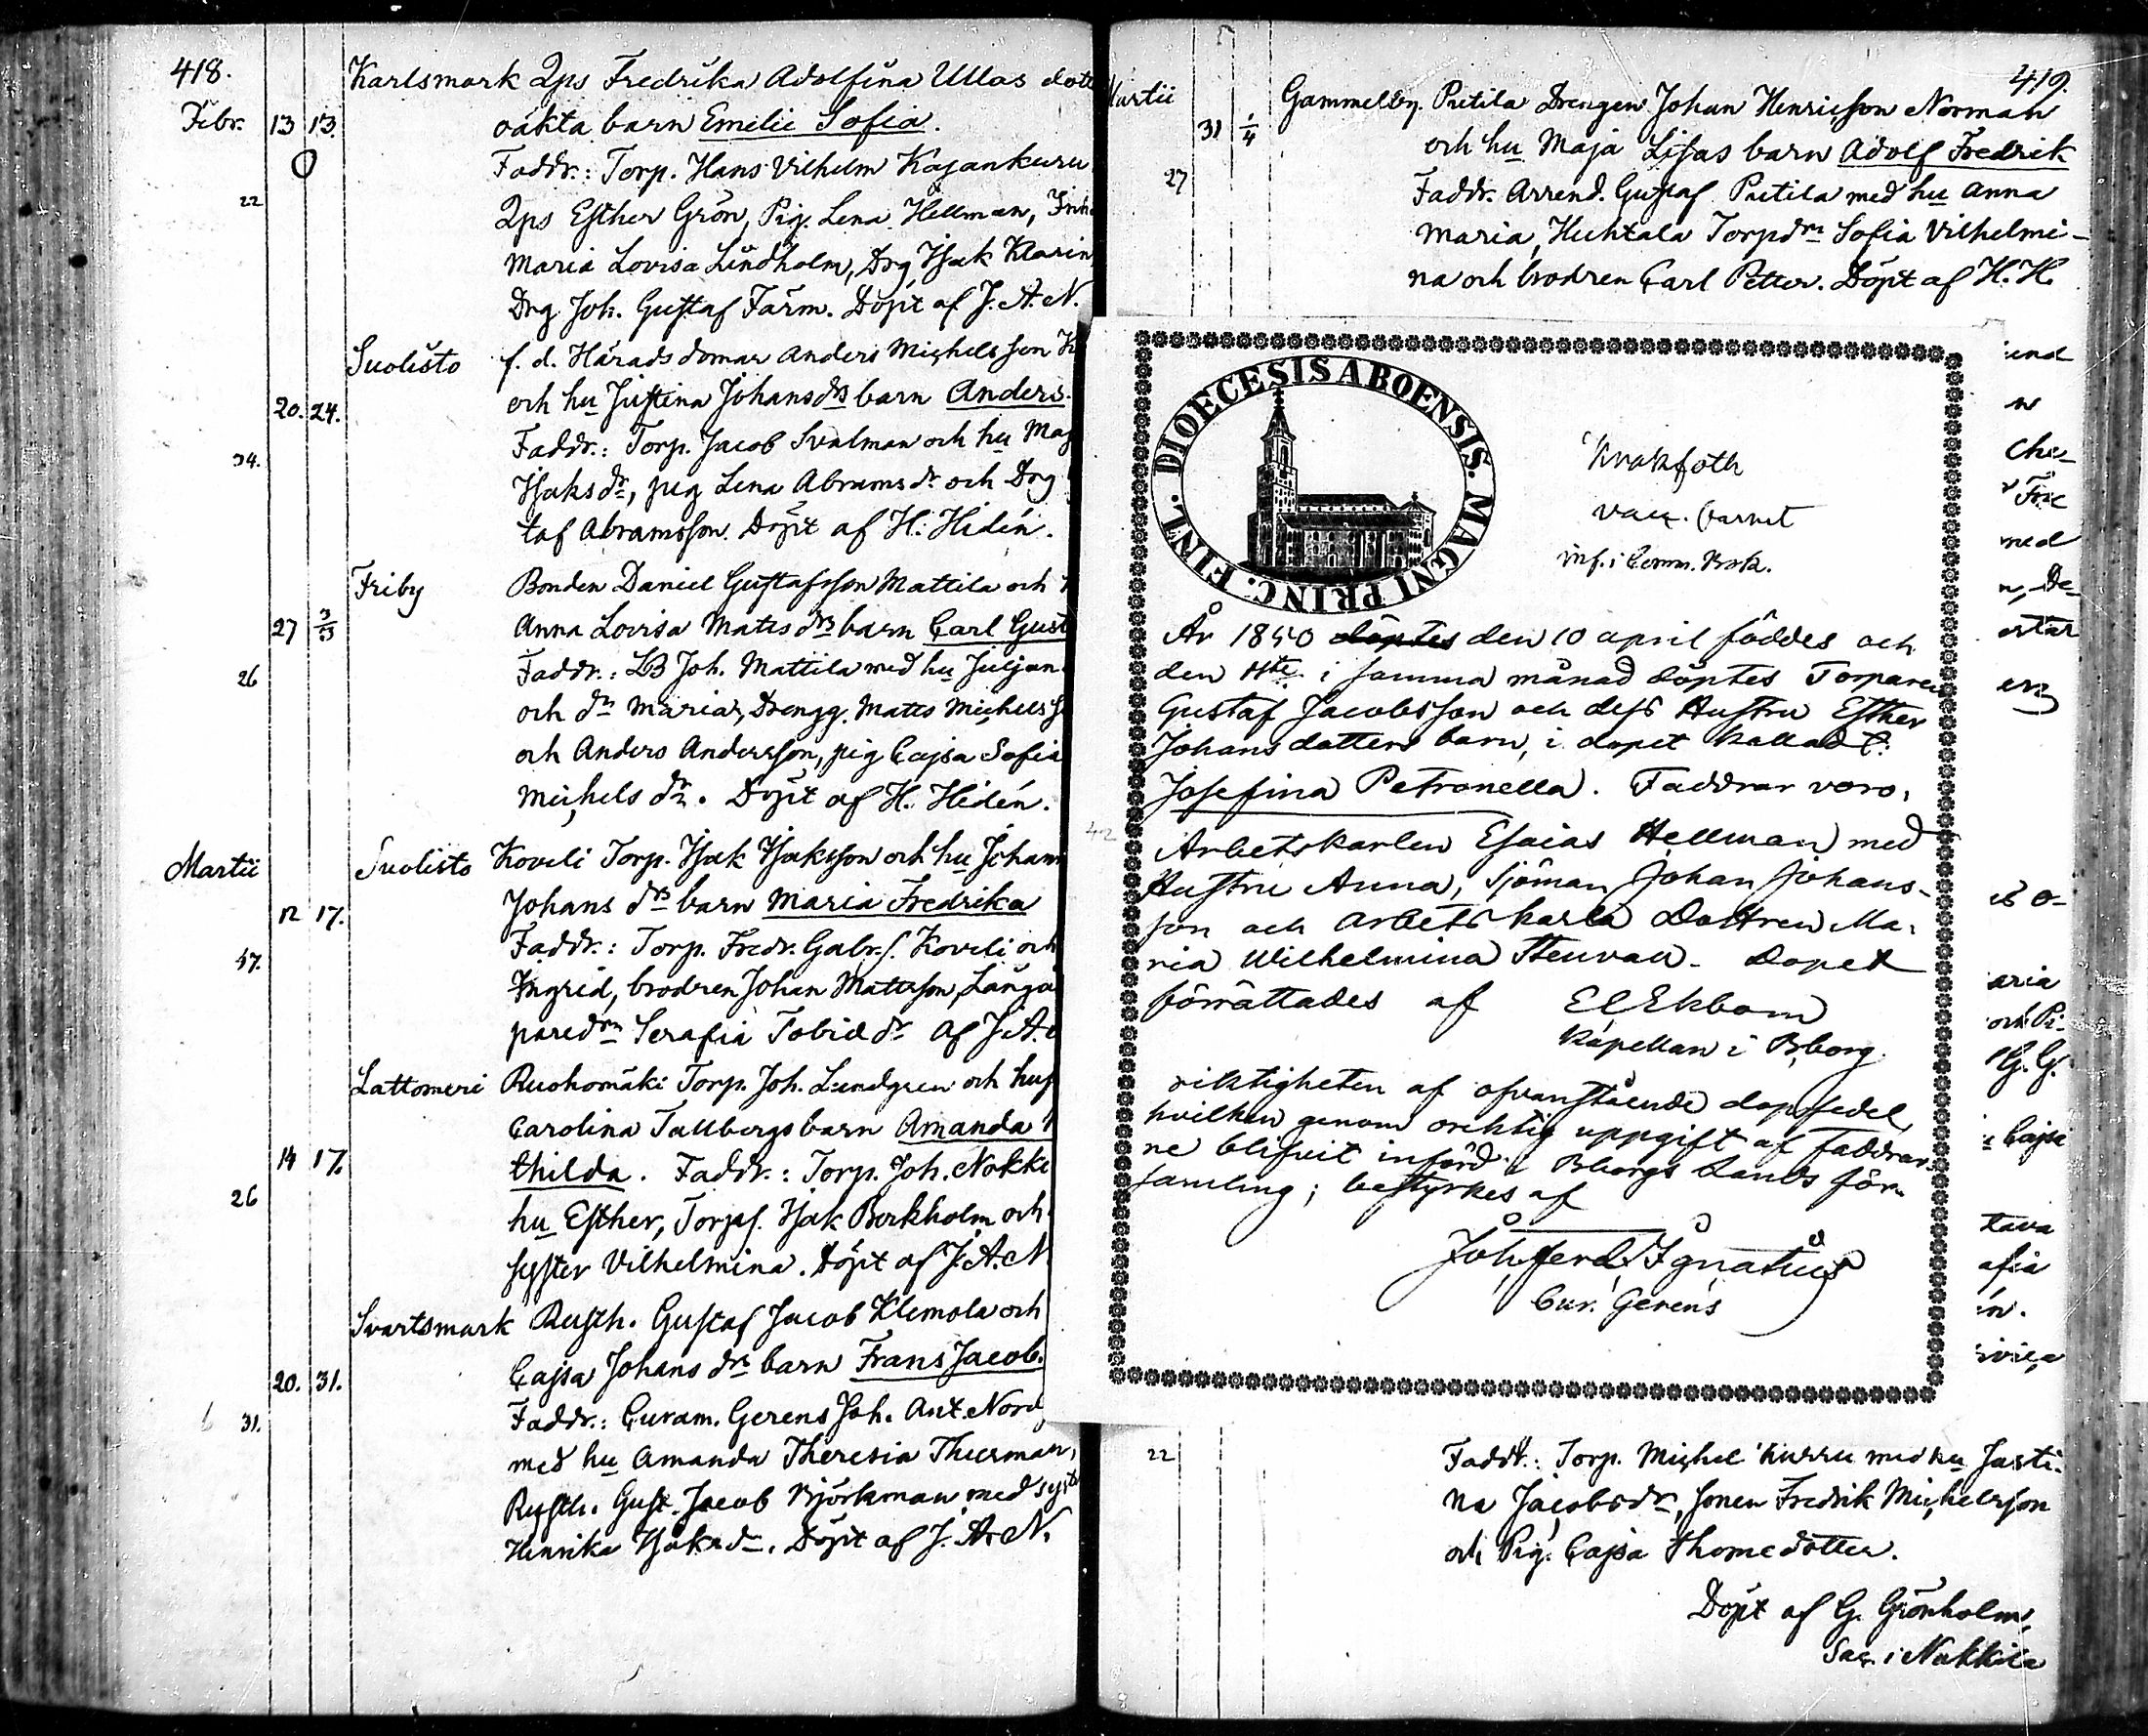 418.
Karlsmark Qps Fredrika Adolfina Ullas dott
Febr. 13 13. oäkta barn Emelie Sofia.
Faddr.: Torp. Hans Vilhelm Kajankuru
22 Qps Esther Grön, Pig. Lena Hellman, Inh
Maria Lovisa Lindholm, Drg Isak Klarin
Drg Joh. Gustaf Färm. Döpt af J. A. N.
Suolisto f. d. Häradsdomar Anders Michelsson
20. 24. och hu Justina Johansdrs barn Anders.
Faddr.: Torp. Jacob Svalman och hu Mag
34. Isaksdr, pig Lena Abramsdr och Drg
taf Abramsson. Döpt af H. Hidén.
Friby Bonden Daniel Gustafsson Mattila och
27 3/3 Anna Lovisa Matts drs barn Carl Gust
26 Faddr.: LB Joh. Mattila med hu Juljan
och dr Maria, Drengg. Matts Michelss
och Anders Andersson, pig Cajsa Sofia
Michels dr. Döpt af H. Hidén.
Martii Suolisto Koveli Torp. Isak Isaksson och hu Johan
12 17. Johans drs barn Maria Fredrika
Faddr.: Torp. Fredr. Gabr.s. Koveli och
47. Ingrid, brodren Johan Mattsson, Långå
paredrn Serafia Tobiedr af J. A.
Lattomeri Ruohomäki Torp. Joh. Lundgren och hus
Carolina Tallbergs barn Amanda
14 17. thilda. Faddr.: Torp. Joh. Nokki
26 hu Esther, Torps. Isak Berkholm och
syster Vilhelmina. Döpt af J. A. N
Svartsmark Rusth. Gustaf Jacob Klemola och
20. 31. Cajsa Johans drs barn Frans Jacob.
31. Faddr.: Curam. Gerens Joh. Ant. Nord
med hu Amanda Theresia Thurman,
Rusth. Gust. Jacob Björkman med syst
Henrika Isaksdr. Döpt af J. A. N.
419.
Martii Gammelby. Putila Drengen Johan Henricsson Norman
31 1/4 och hu Maja Lisas barn Adolf Fredrik
27 Faddr. Arrend. Gustaf Putila med hu Anna
Maria, Huhtala Torpdrn Sofia Vilhelmi-
na och brodren Carl Petter. Döpt af H. H.
DIOECESIS ABOENSIS. MAGNI PRINC. FINL.
Krakfoth
vacc. barnet
inf. i Comm. Bok.
År 1840 döptes den 10 april föddes och
den 11te i samma månad döptes Torparen
Gustaf Jacobsson och dess Hustru Esther
Johansdotters barn, i dopet kalladt:
Josefina Petronella. Faddrar voro,
42 Arbetskarlen Esaias Hellman med
Hustru Anna, Sjöman Johan Johans-
son och arbetskarls Dottren Ma-
ria Wilhelmina Stenvall. Dopet
förrättades af E Ekbom
Kapellan i Bborg.
riktigheten af ofvanstående dopsedel,
hvilken genom oriktig uppgift af Faddrar-
ne blifvit införd i Bborgs Lands för-
samling; bestyrkes af
Joh. Ferd. Ignatius
Cur. Gerens
22 Faddr.: Torp. Michel Kurru med hu Justi-
na Jacobsdr, sonen Fredrik Michelsson
och Pig. Cajsa Thomedotter.
Döpt af G. Grönholm,
Sac. i Nakkila